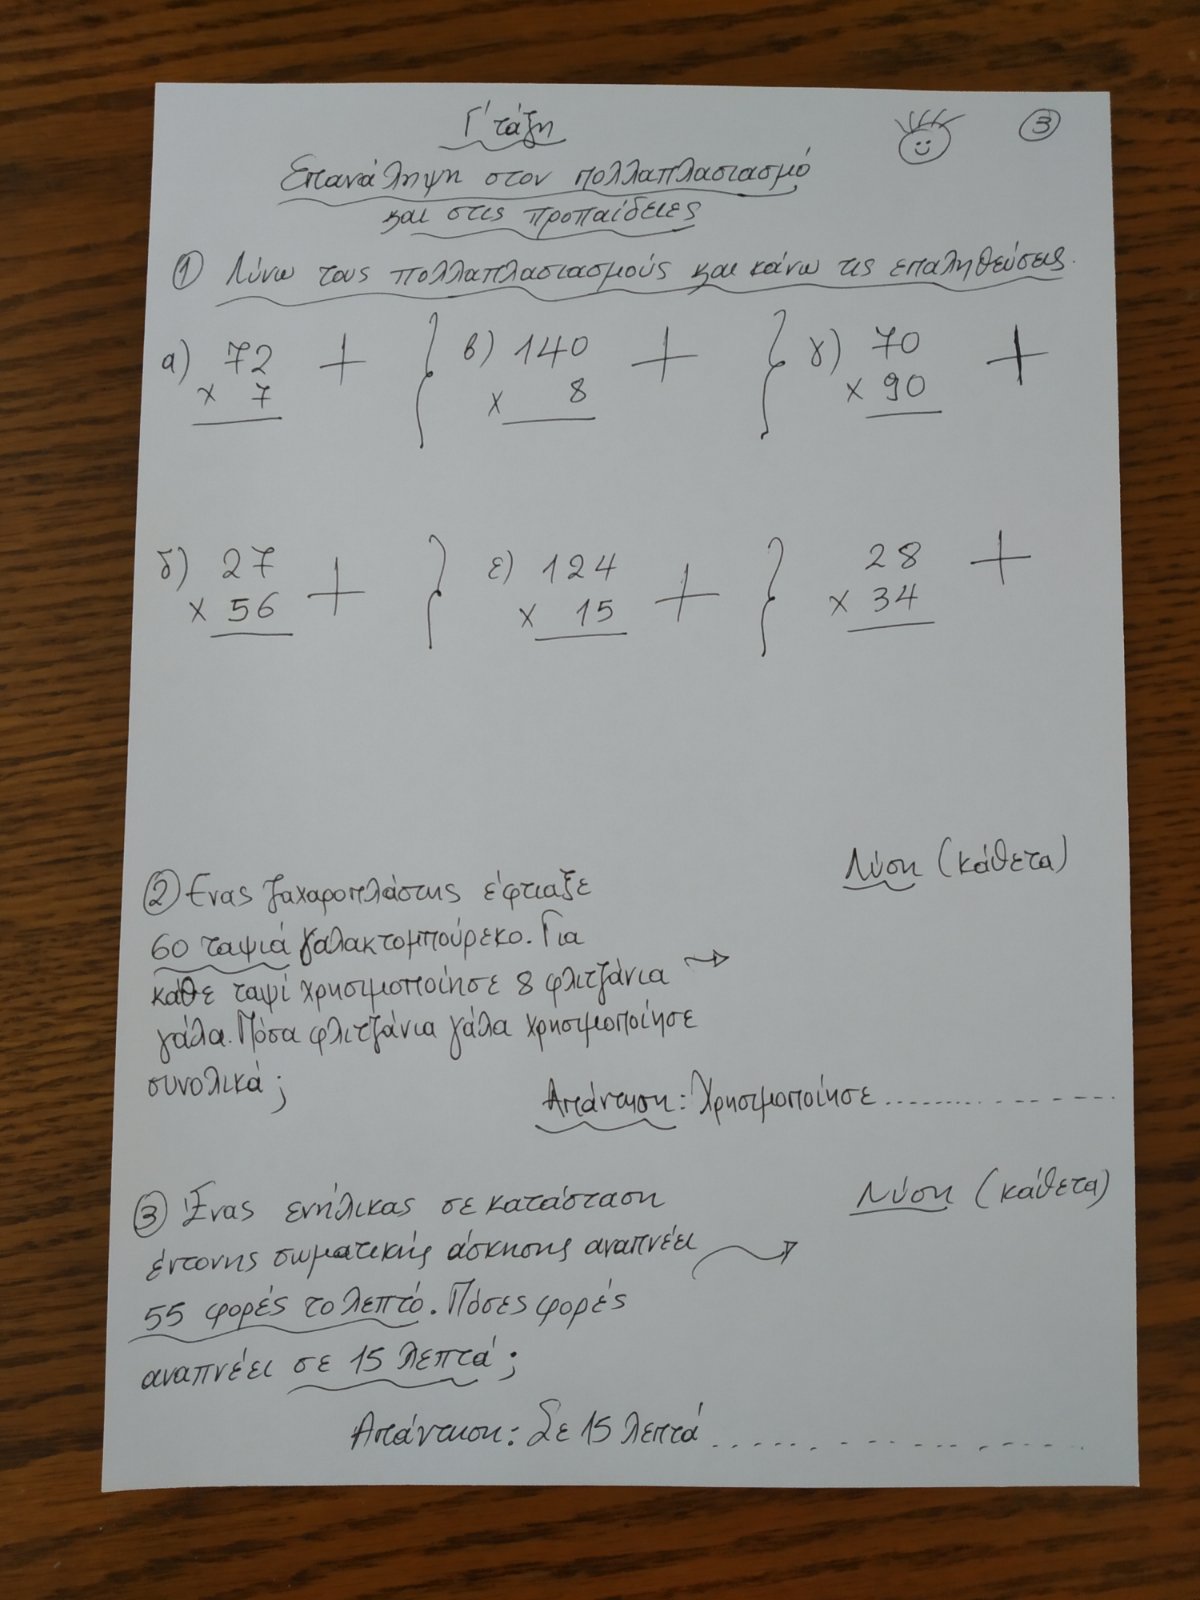 Γ' τάξη
3
Επανάληψη στον πολλαπλασιασμό
και στις προπαίδειες
① Λύνω τους πολλαπλασιασμούς και κάνω τις επαληθεύσεις.
α) 72 + β) 140 + γ) 70 +
x 7 x 8 x 90
δ) 27 + ε) 124 + 28 +
x 56 x 15 x 34
Λύση (κάθετα)
② Ένας ζαχαροπλάστης έφτιαξε
60 ταψιά γαλακτομπούρεκο. Για
κάθε ταψί χρησιμοποίησε 8 φλιτζάνια
γάλα. Πόσα φλιτζάνια γάλα χρησιμοποίησε
συνολικά;
Απάντηση: Χρησιμοποίησε ....................
Λύση (κάθετα)
③ Ένας ενήλικας σε κατάσταση
έντονης σωματικής άσκησης αναπνέει
55 φορές το λεπτό. Πόσες φορές
αναπνέει σε 15 λεπτά;
Απάντηση: Σε 15 λεπτά ....................